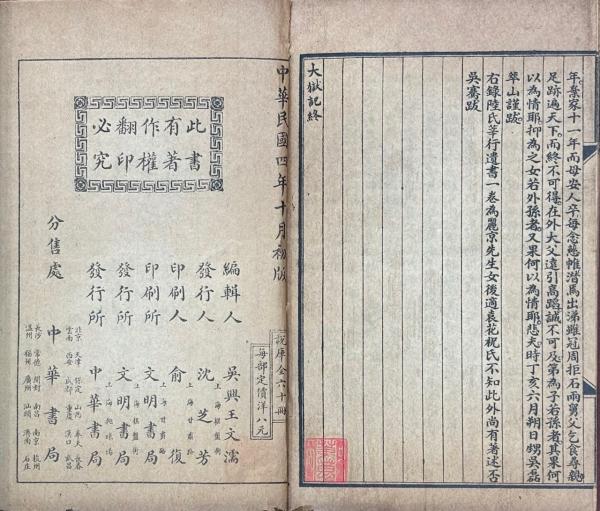 年棄家十一年而母安人卒每念慈帷潸焉出涕雖冠周拒石兩舅父乞食尋親
足跡遍天下而終不可得在外大父遠引高蹈誠不可及第為子若孫者其果何
以為情耶抑為之女若外孫者又果何以為情耶悲夫時丁亥六月朔日甥吳磊
萃山謹跋
右錄陸氏莘行遺書一卷為麗京先生女後適袁花祝氏不知此外尚有著述否
吳騫跋
大獄記終
中華民國四年十月初版
說庫全六十冊
每部定價洋八元
此書
有著
作權
翻印
必究
編輯人 吳興王文濡
發行人 上海棋盤街 沈芝芳
印刷人 上海甘肅路 俞復
印刷所 上海甘肅路 文明書局
發行所 上海棋盤街 文明書局
發行所 上海拋球場 中華書局
分售處 中華書局
北京 天津 保定 山西 奉天 長春
雲南 西安 成都 重慶 漢口 武昌
長沙 常德 開封 南昌 南京 杭州
溫州 福州 廣州 汕頭 濟南 石莊